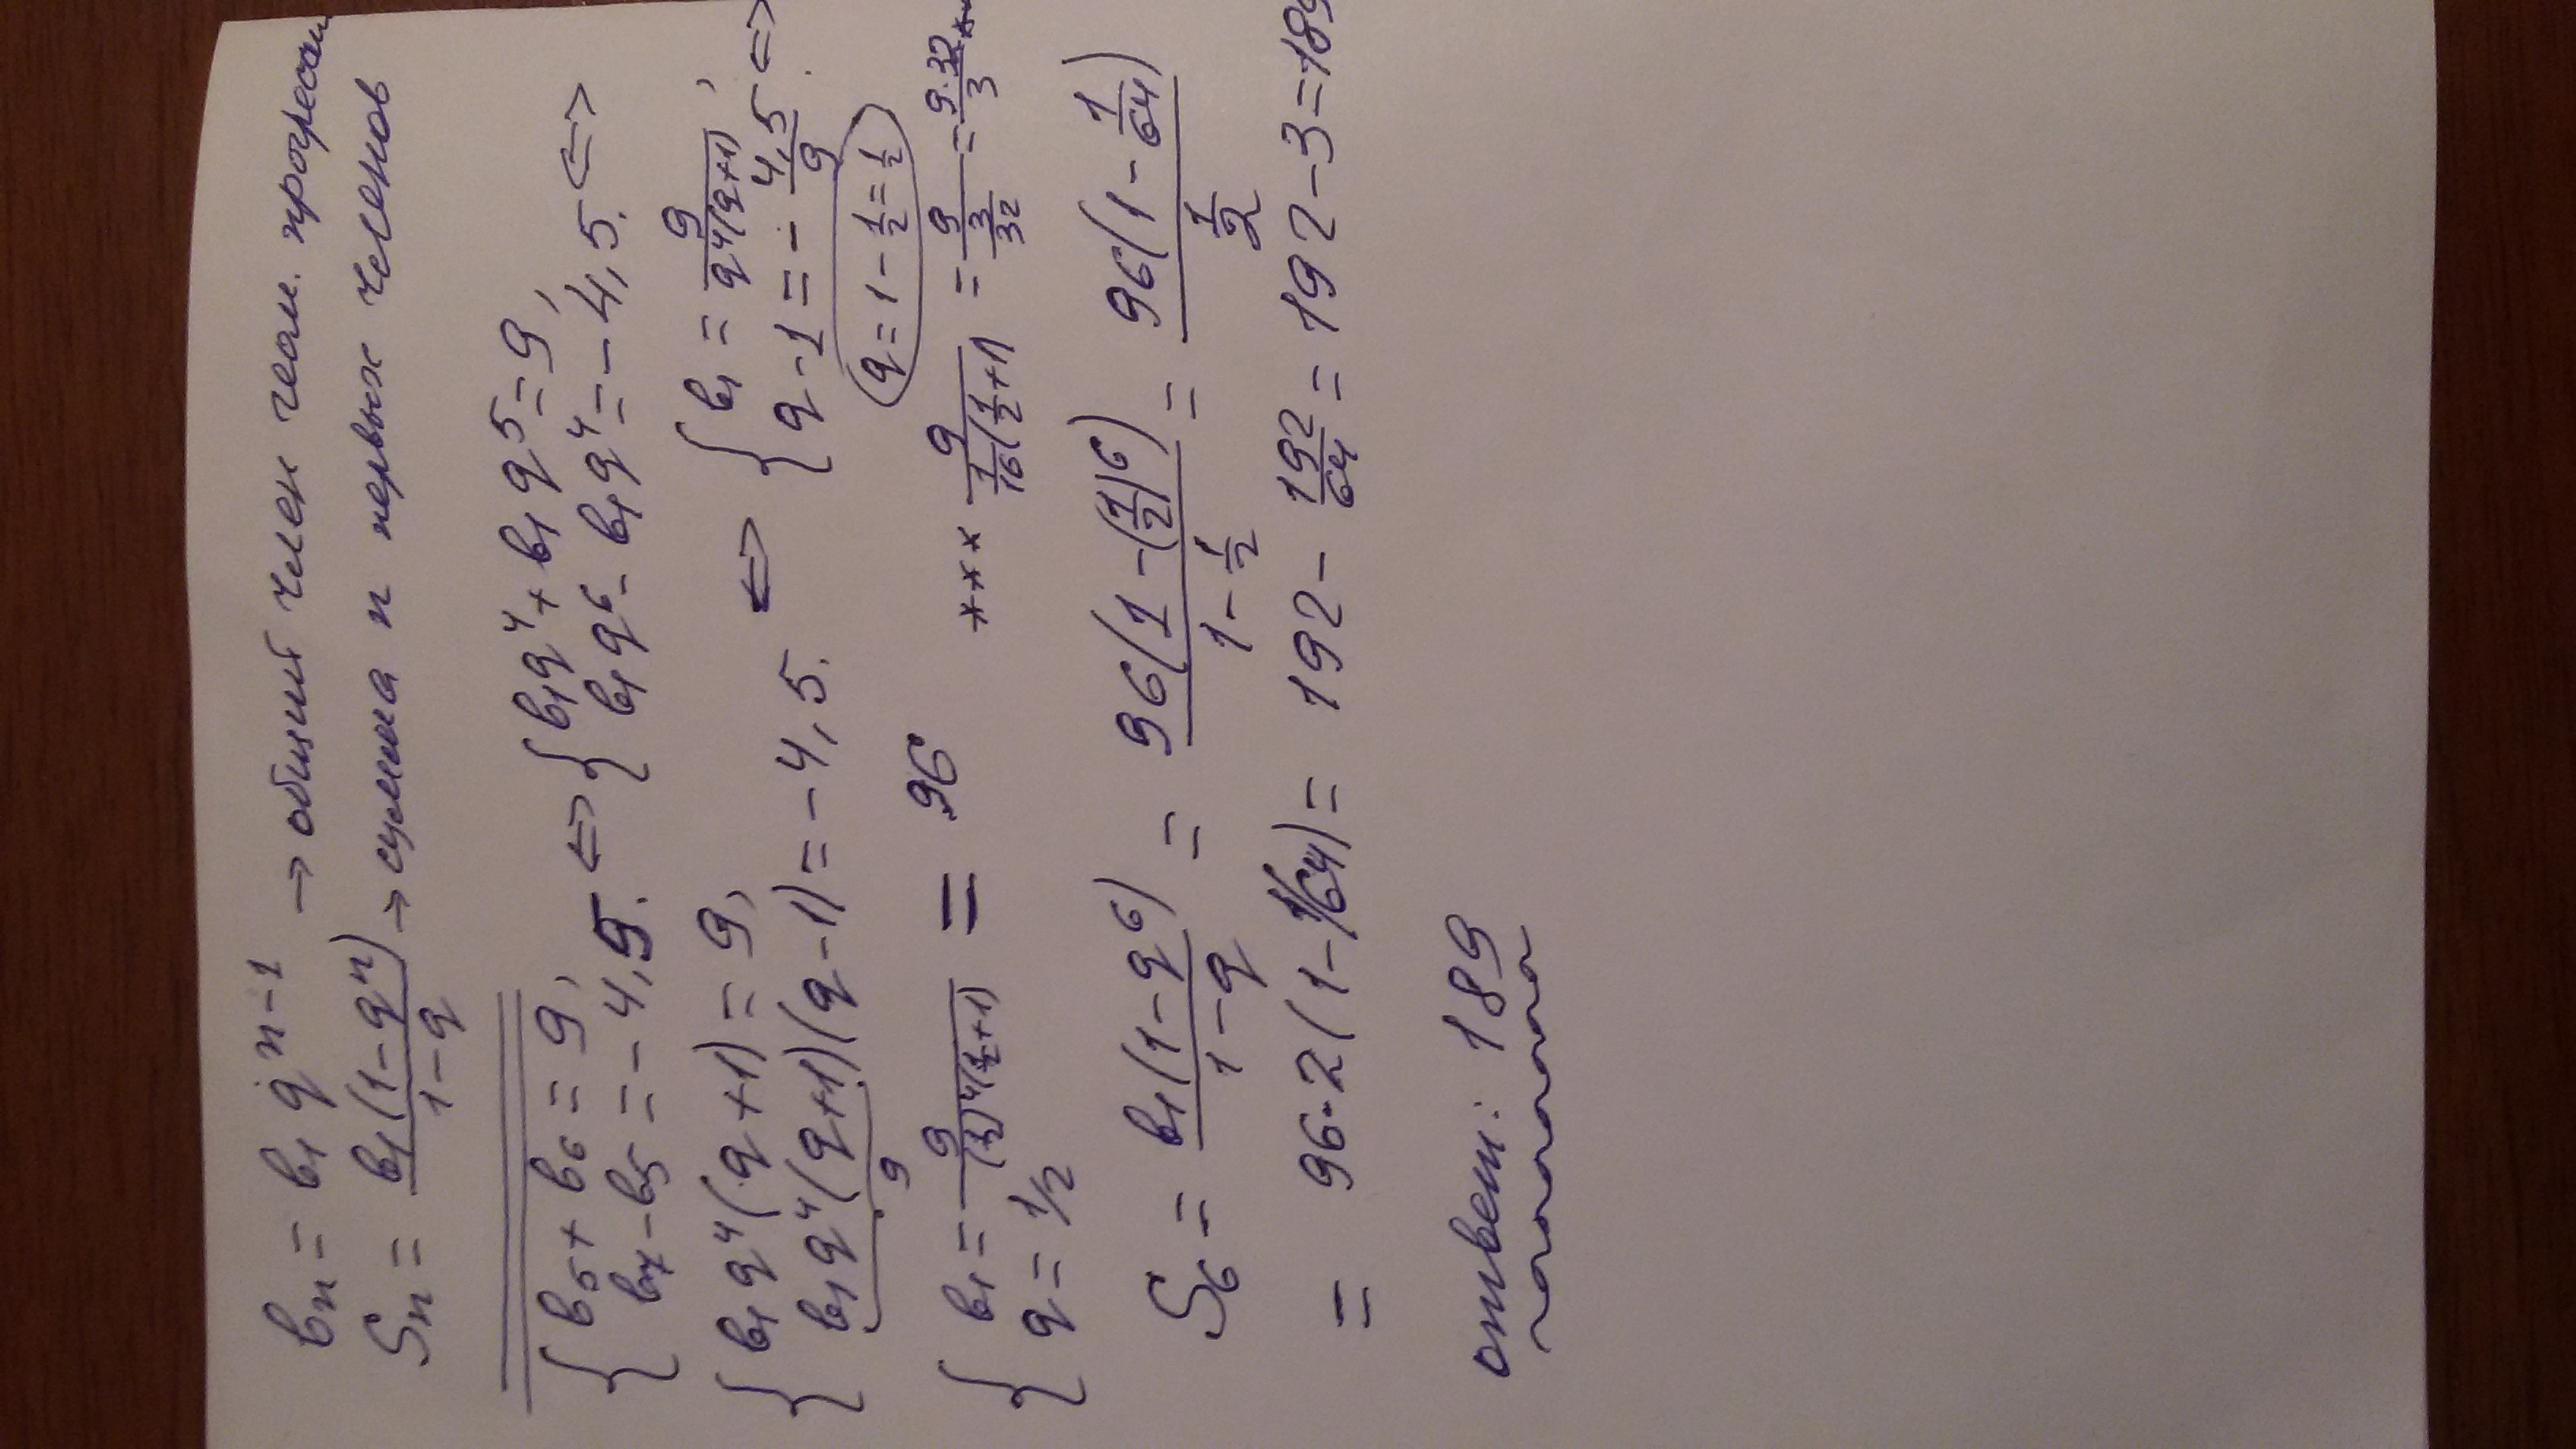 bₙ = b₁ qⁿ⁻¹ → общий член геом. прогрессии
Sₙ = b₁(1-qⁿ)/(1-q) → сумма n первых членов
{ b₅ + b₆ = 9, b₇ - b₅ = -4,5. <=> { b₁q⁴ + b₁q⁵ = 9, b₁q⁶ - b₁q⁴ = -4,5. <=>
{ b₁q⁴(q+1) = 9, b₁q⁴(q+1)(q-1) = -4,5. <=> { b₁ = 9/(q⁴(q+1)), q-1 = -4,5/9. <=>
9 q = 1 - 1/2 = 1/2
{ b₁ = 9/((1/2)⁴(1/2+1)) = 96 *** 9/(1/16(1/2+1)) = 9/(3/32) = 9·32/3 **
q = 1/2
S₆ = b₁(1-q⁶)/(1-q) = 96(1-(1/2)⁶)/(1-1/2) = 96(1-1/64)/(1/2)
= 96·2(1-1/64) = 192 - 192/64 = 192-3=189
ответ: 189